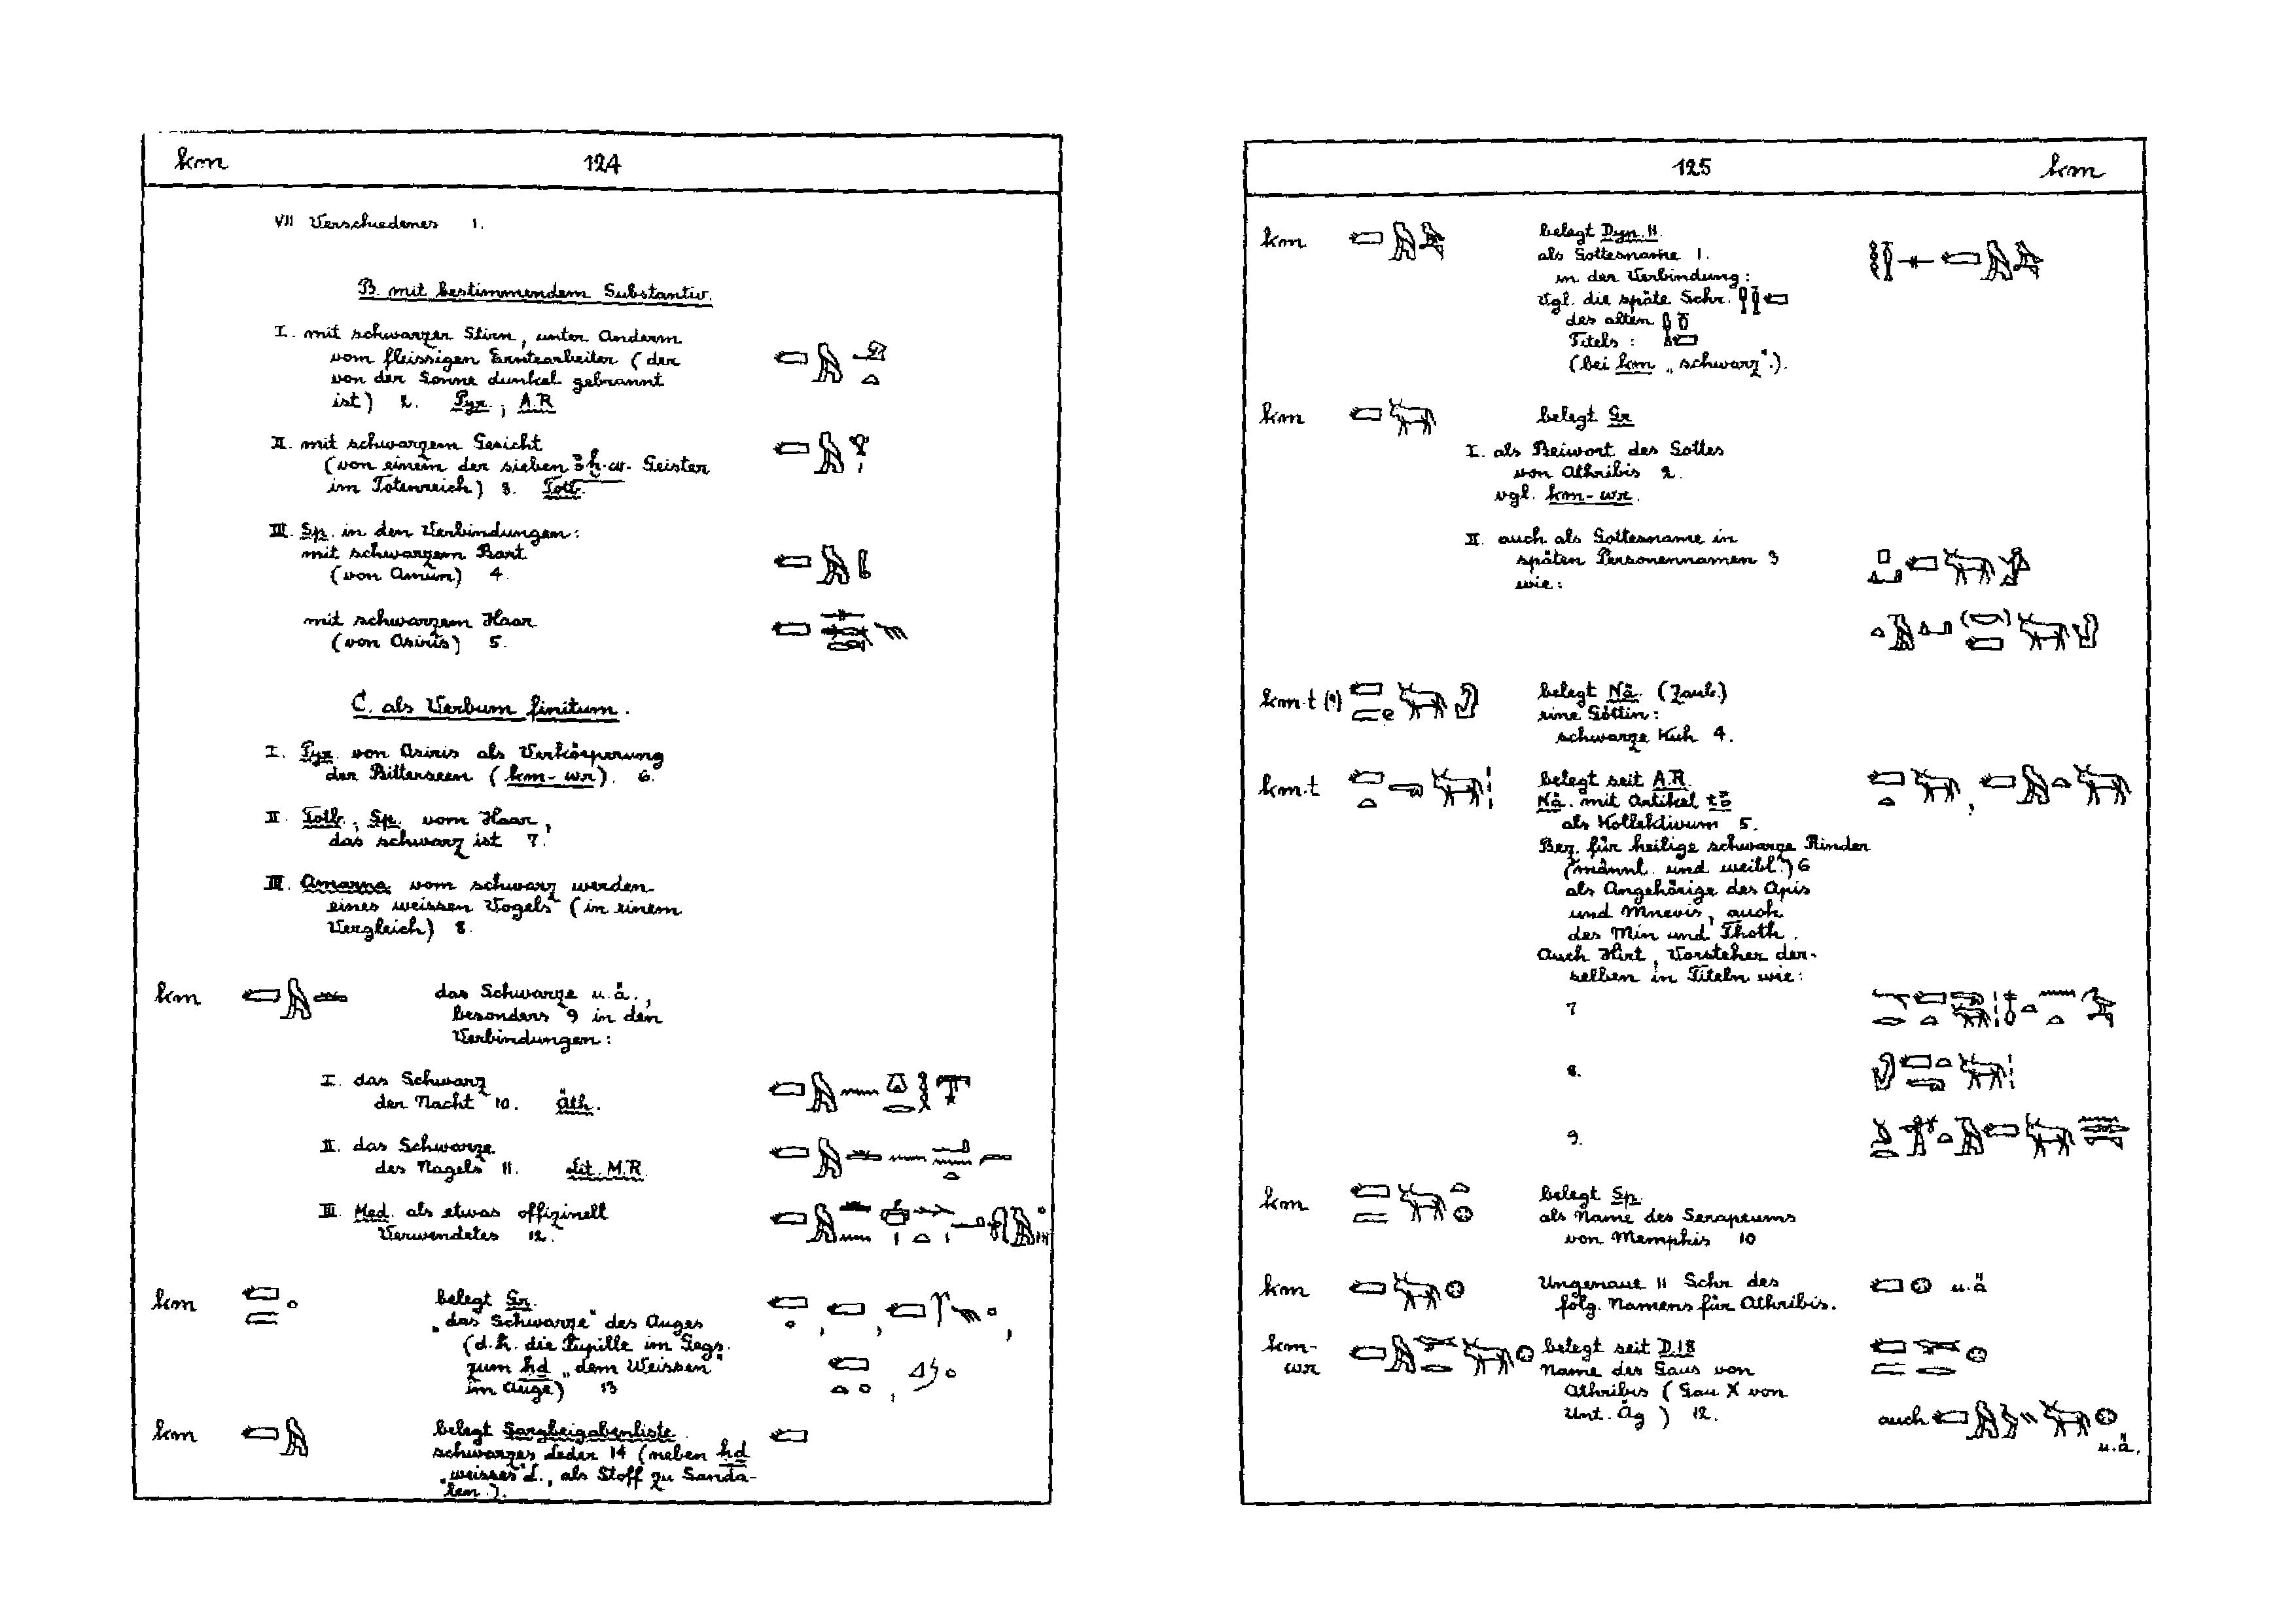 km 124
VII Verschiedenes 1.
B. mit bestimmendem Substantiv.
I. mit schwarzer Stirn, unter Anderm
vom fleissigen Erntearbeiter (der
von der Sonne dunkel gebrannt
ist) 2. Pyr., A.R
II. mit schwarzem Gesicht
(von einem der sieben ꜣḫ.w- Geister
im Totenreich) 3. Totb.
III. Sp. in den Verbindungen:
mit schwarzem Bart
(von Amun) 4.
mit schwarzem Haar
(von Osiris) 5.
C. als Verbum finitum.
I. Pyr. von Osiris als Verkörperung
der Bitterseen (km-wr). 6.
II Totb., Sp. vom Haar,
das schwarz ist 7.
III. Amarna vom schwarz werden
eines weissen Vogels (in einem
Vergleich) 8.
km das Schwarze u.ä.,
besonders 9 in den
Verbindungen:
I. das Schwarz
der Nacht 10. Äth.
II. das Schwarze
des Nagels 11. Lit. M.R.
III. Med. als etwas offizinell
Verwendetes 12.
km belegt Gr.
„das Schwarze" des Auges
(d.h. die Pupille im Gegs.
zum ḥḏ „dem Weissen"
im Auge) 13
km belegt Sargbeigabenliste
schwarzes Leder 14 (neben ḥḏ
„weisses" L., als Stoff zu Sanda-
len.).
125 km
km belegt Dyn. II.
als Gottesname 1.
in der Verbindung:
Vgl. die späte Schr.
des alten
Titels:
(bei km „schwarz".).
km belegt Gr
I. als Beiwort des Gottes
von Athribis 2.
vgl. km-wr.
II. auch als Gottesname in
späten Personennamen 3
wie:
km.t (?) belegt Nä. (Zaub.)
eine Göttin:
schwarze Kuh 4.
km.t belegt seit A.R.
Nä. mit Artikel tꜣ
als Kollektivum 5.
Bez. für heilige schwarze Rinder
(männl. und weibl.) 6
als Angehörige des Apis
und Mnevis, auch
des Min und Thoth.
Auch Hirt, Vorsteher der-
selben in Titeln wie:
7
8.
9.
km belegt Sp.
als Name des Serapeums
von Memphis 10
km Ungenaue 11 Schr. des
folg. Namens für Athribis. u.ä
km- belegt seit D.18
wr Name des Gaus von
Athribis (Gau X von
Unt. Äg) 12. auch
u.ä.